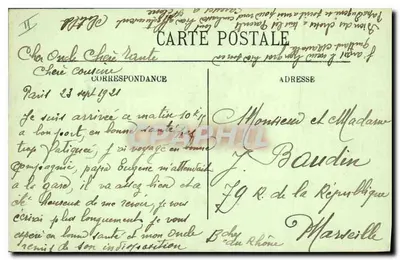 II
CARTE POSTALE
Cher Oncle Chère Tante
Chère cousine
CORRESPONDANCE
ADRESSE
Paris 23 sept 1921
Je suis arrivée ce matin 10h
à bon port, en bonne santé pas
trop fatiguée, j'ai voyagé en bonne
compagnie, papa Eugène m'attendait
à la gare, il va assez bien et a
été heureux de me revoir, je vous
écrirai plus longuement, je vous
espère en bonne santé et mon Oncle
remis de son indisposition
Monsieur et Madame
J. Baudin
79 R. de la République
Marseille
Bches du Rhône